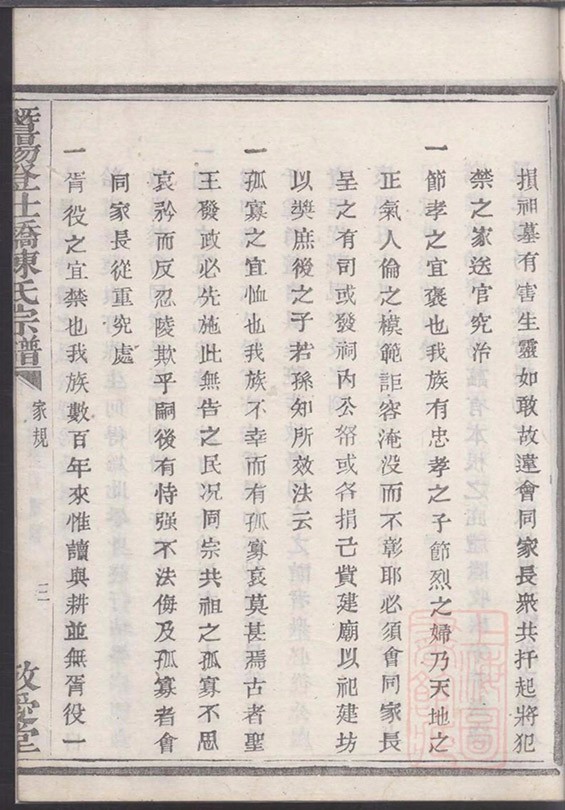 損祖墓有害生靈如敢故違會同家長衆共扦起將犯
禁之家送官究治
一節孝之宜褒也我族有忠孝之子節烈之婦乃天地之
正氣人倫之模範詎容淹没而不彰耶必須會同家長
呈之有司或發祠内公帑或各捐己貲建廟以祀建坊
以獎庶後之子若孫知所效法云
一孤寡之宜恤也我族不幸而有孤寡哀莫甚焉古者聖
王發政必先施此無告之民况同宗共祖之孤寡不思
哀矜而反忍陵欺乎嗣後有恃强不法侮及孤寡者會
同家長從重究處
一胥役之宜禁也我族數百年來惟讀與耕並無胥役一
暨陽登仕橋陳氏宗譜
家規
三
敬愛堂